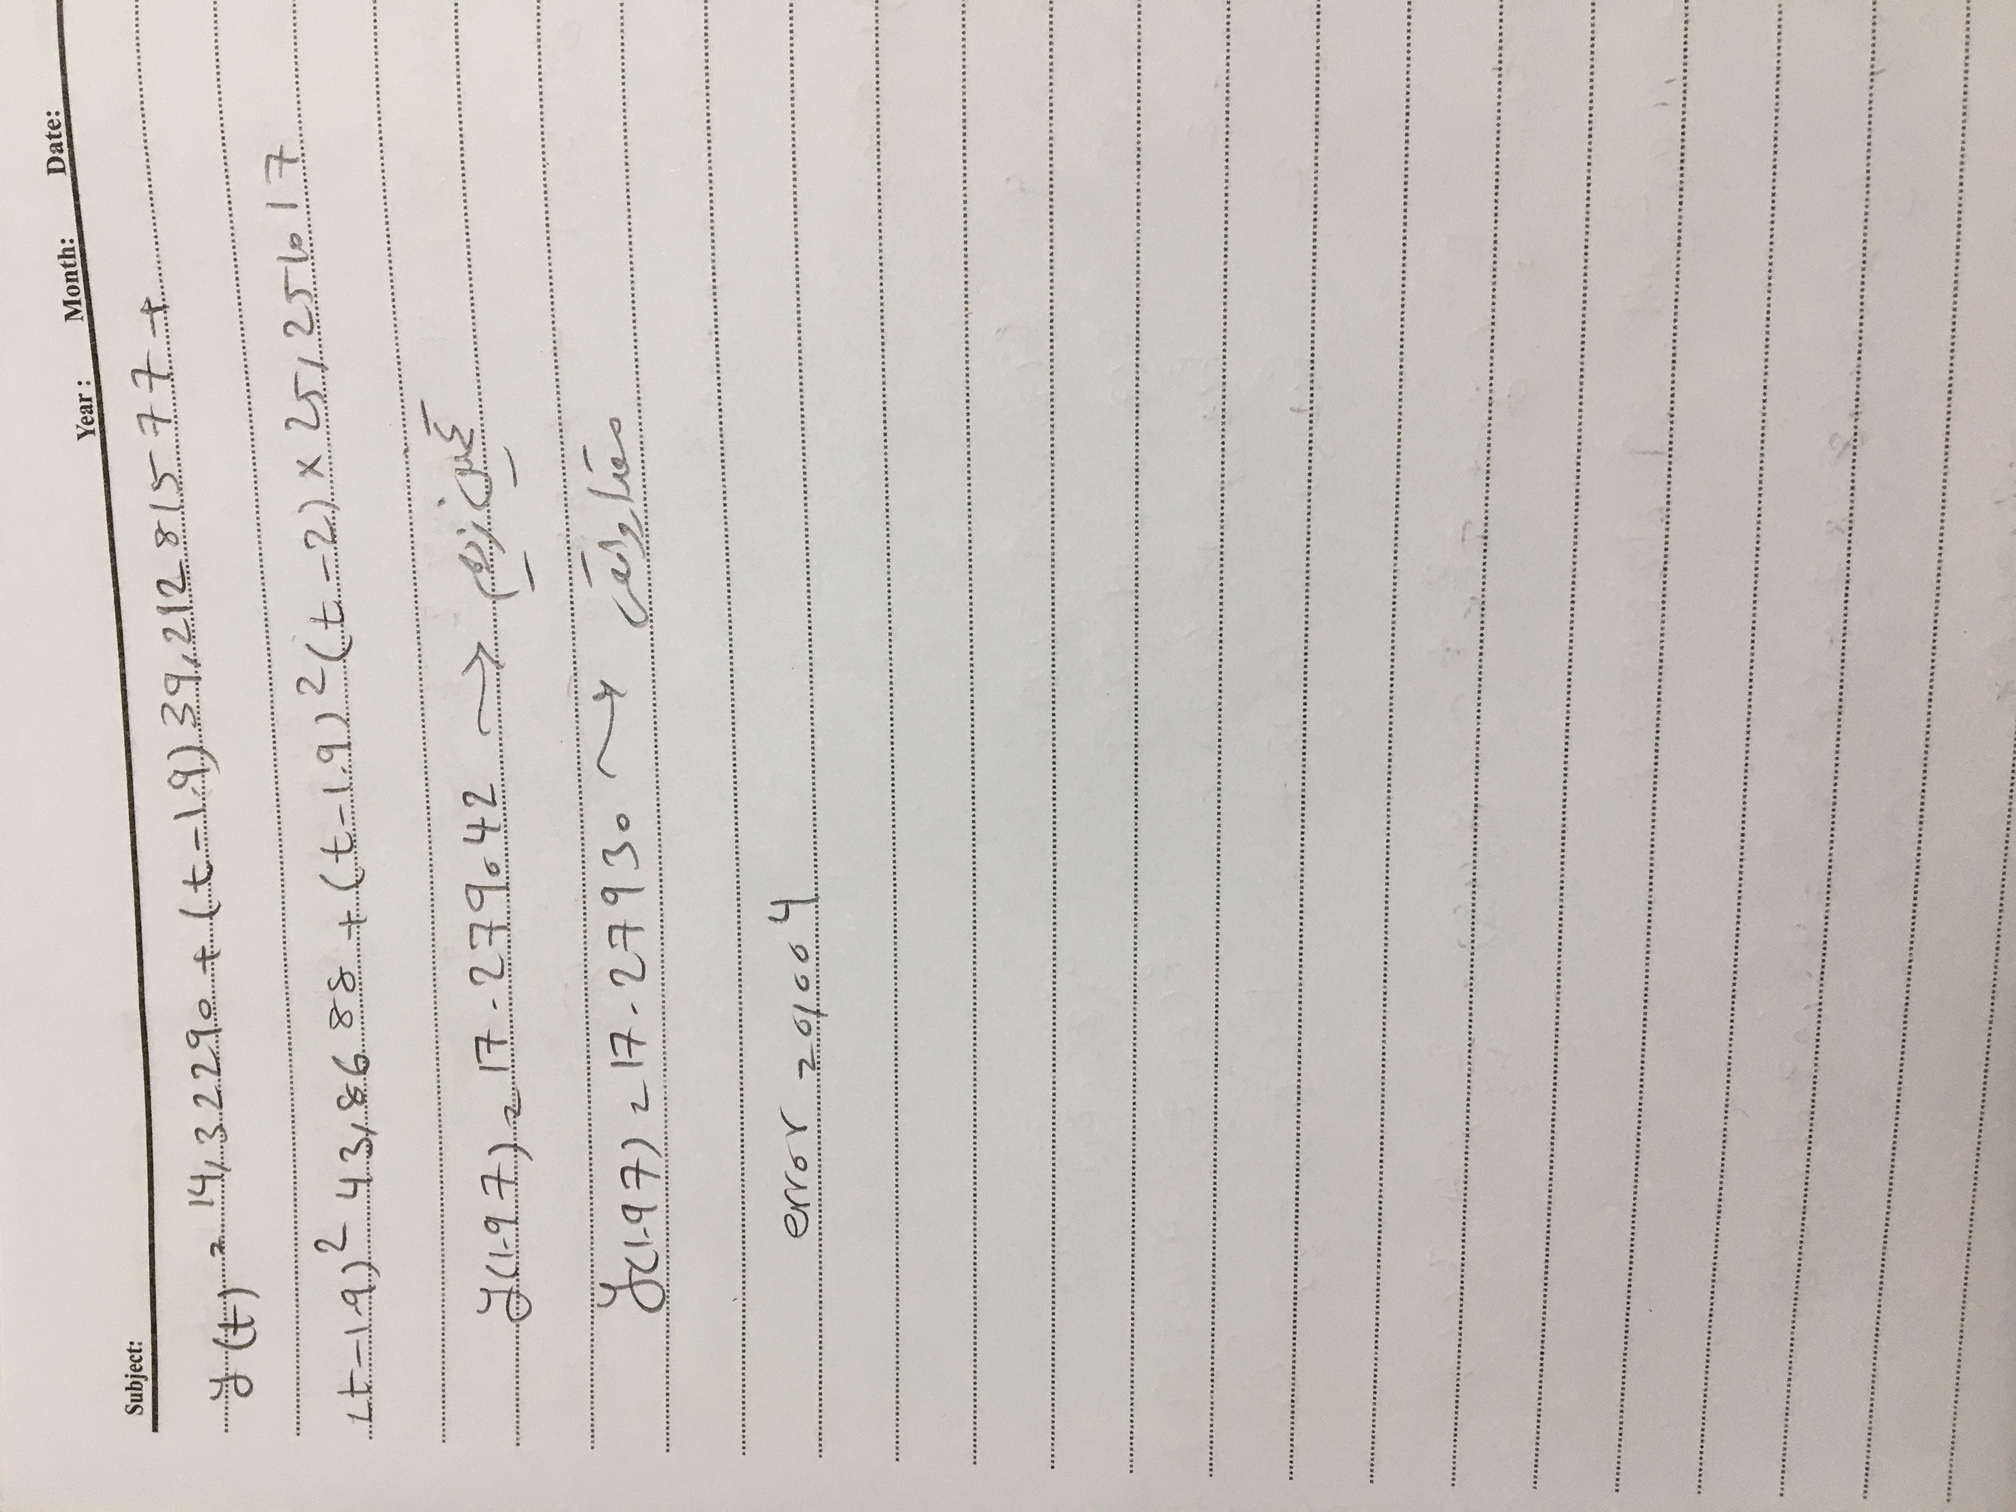 Subject:
Year: Month: Date:
y(t) = 14,32290 + (t-1.9) 39,21281577 +
(t-1.9)² 43,8688 + (t-1.9)² (t-2) × 25,251017
y(1.97) = 17.279042 →
y(1.97) = 17.27930 →
error = 0/004